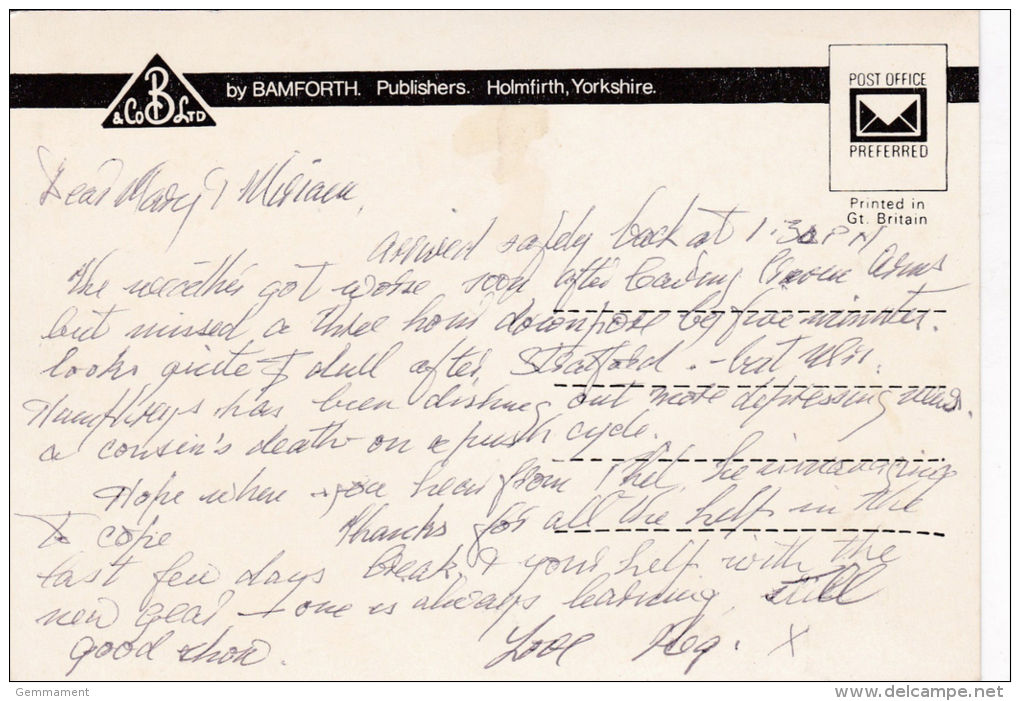 & Co B LTD
by BAMFORTH. Publishers. Holmfirth, Yorkshire.
POST OFFICE
PREFERRED
Printed in
Gt. Britain
Dear Mary & Miriam,
arrived safely back at 1.30 PM
The weather got worse soon after leaving Craven Arms
but missed a three hour downpore by five minutes.
looks quite dull after Stratford. - but Mrs.
Humphreys has been dishing out more depressing news.
a cousin's death on a push cycle.
Hope when you hear from Phil, he is managing
to cope Thanks for all the help in the
last few days break & your help with the
new gear - one is always learning, still
good show. Love Reg. X
Gemmament
www.delcampe.net